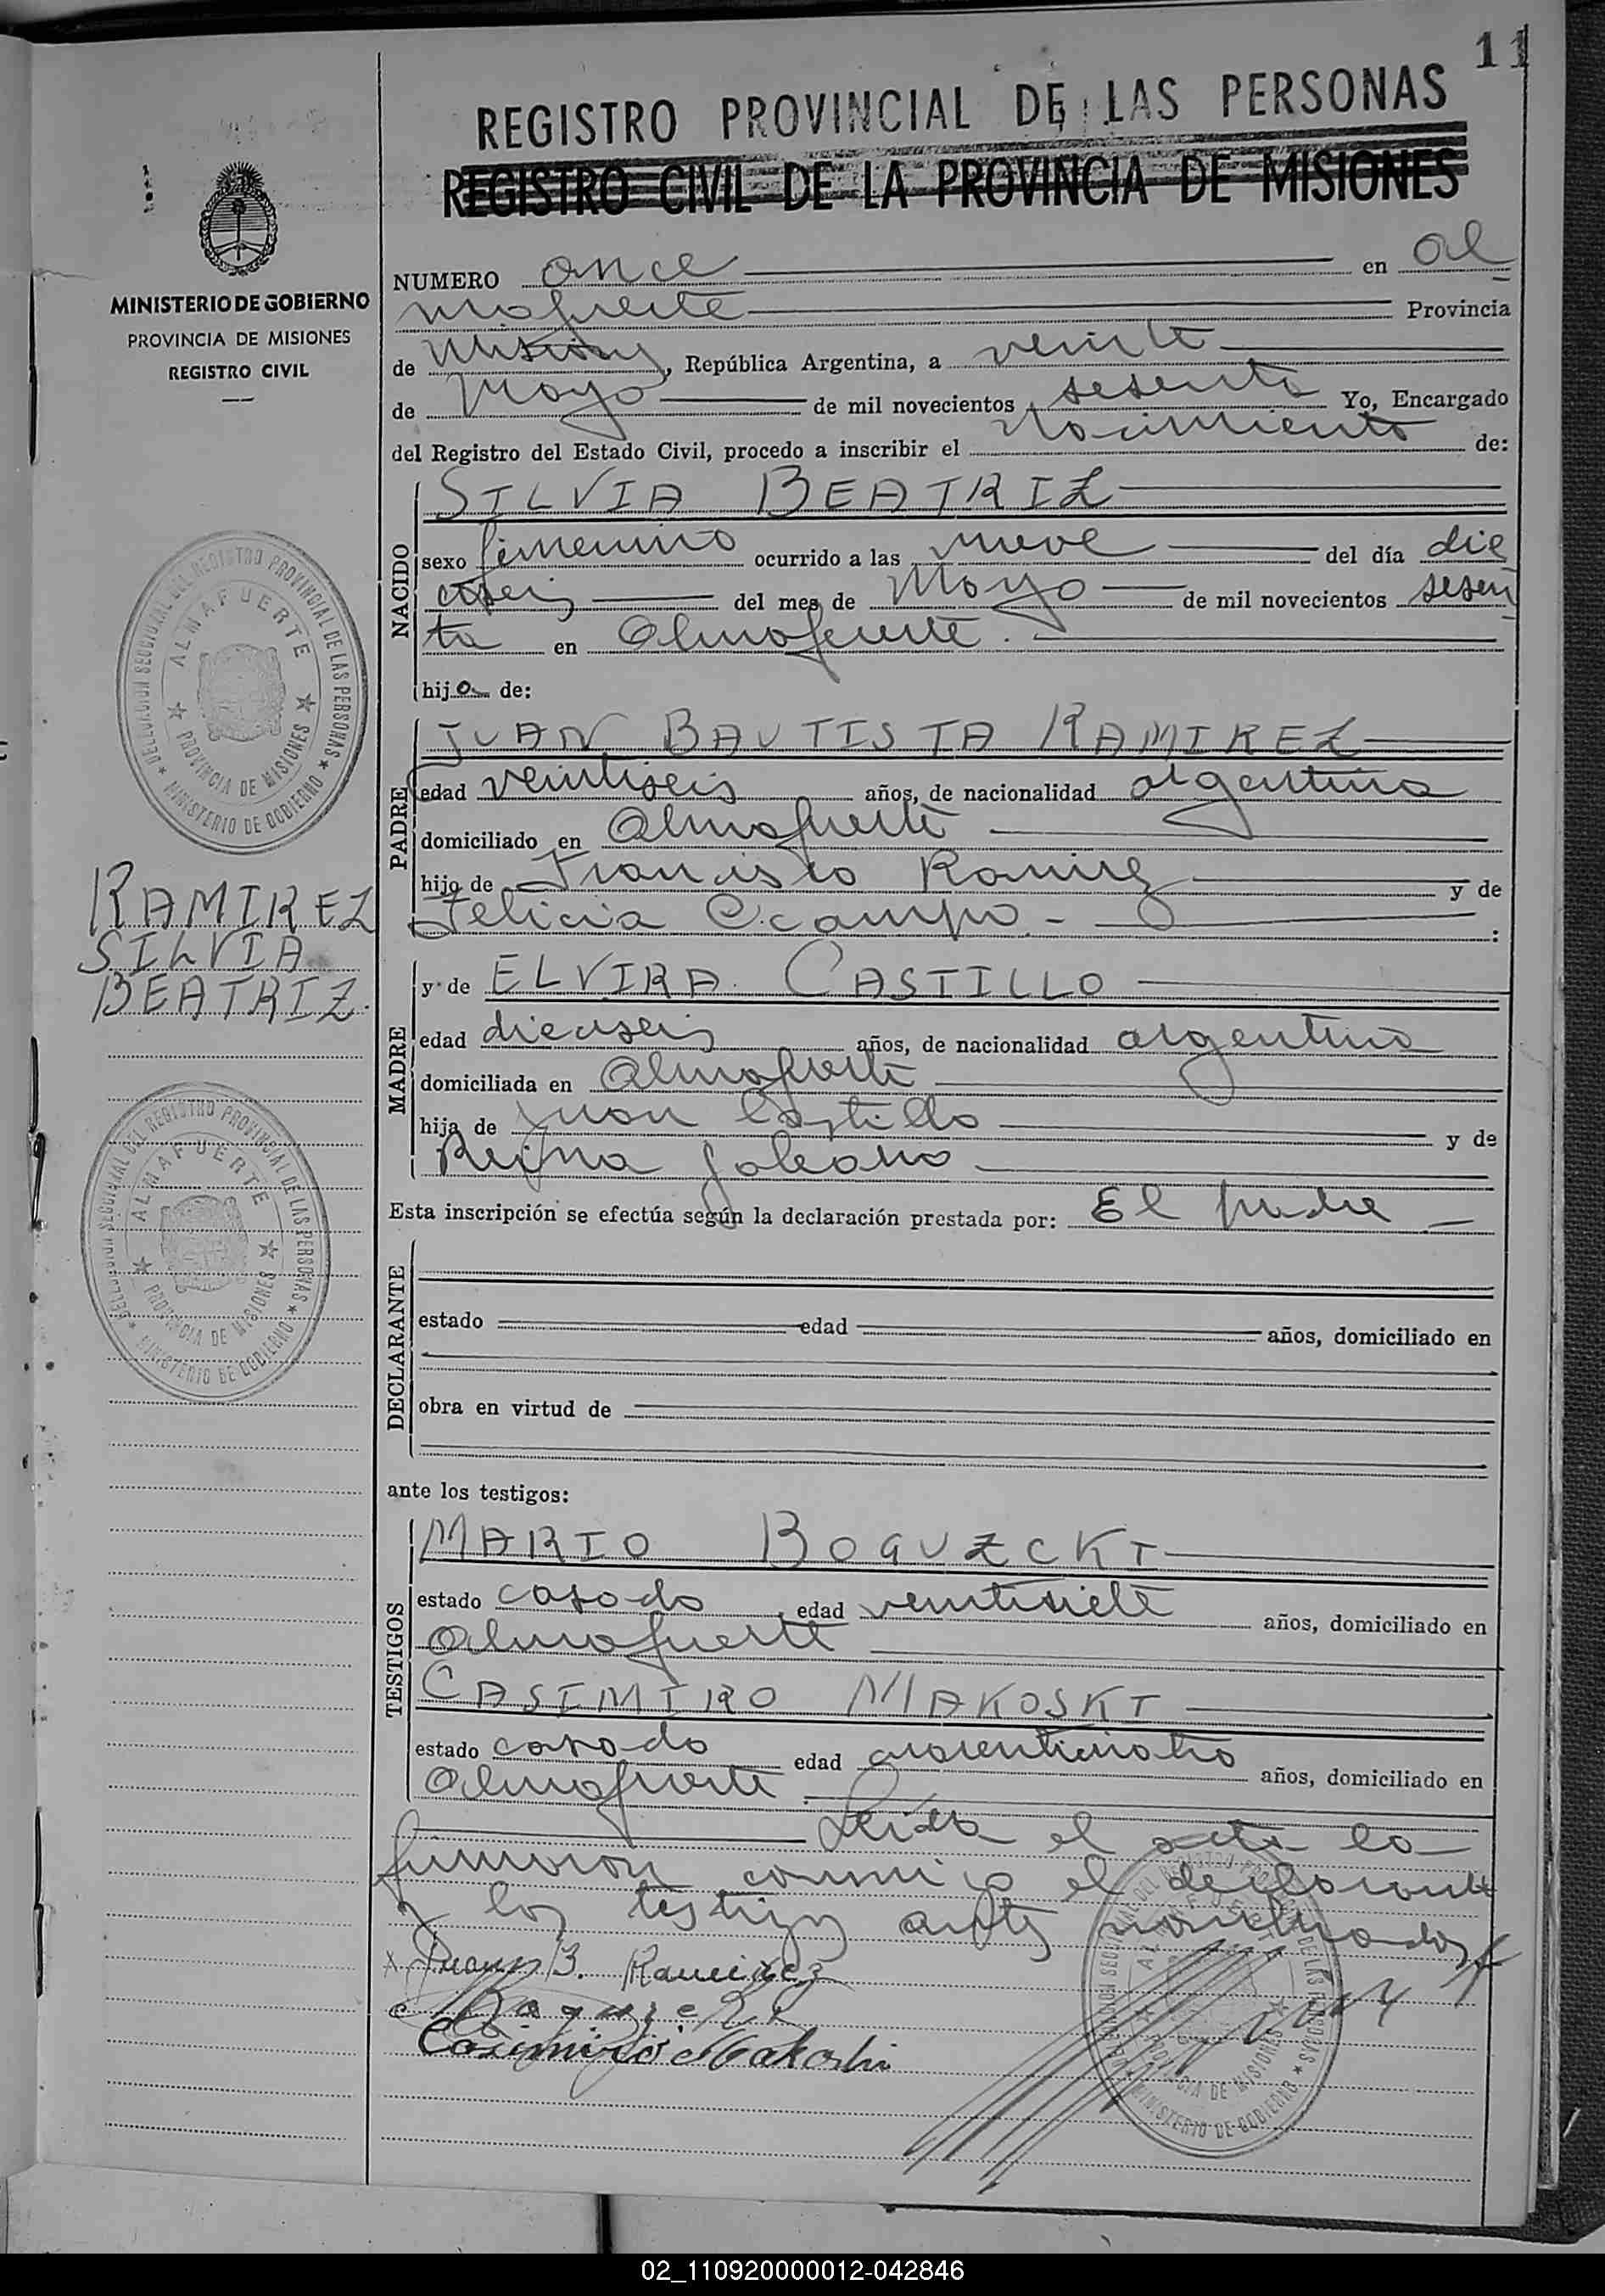 11
REGISTRO PROVINCIAL DE LAS PERSONAS
REGISTRO CIVIL DE LA PROVINCIA DE MISIONES
MINISTERIO DE GOBIERNO
PROVINCIA DE MISIONES
REGISTRO CIVIL
NUMERO once en al
mafuerte Provincia
de Misiones, República Argentina, a veinte
de Mayo de mil novecientos sesenta Yo, Encargado
del Registro del Estado Civil, procedo a inscribir el Nacimiento de:
NACIDO
SILVIA BEATRIZ
sexo femenino ocurrido a las nueve del día die
ciseis del mes de Mayo de mil novecientos sesen
ta en Almafuerte.
hija de:
PADRE
JUAN BAUTISTA RAMIREZ
edad veintiseis años, de nacionalidad argentina
domiciliado en Almafuerte
hijo de Francisco Ramirez y de
Felicia Ocampo.-
RAMIREZ
SILVIA
BEATRIZ.
MADRE
y de ELVIRA CASTILLO
edad dieciseis años, de nacionalidad argentina
domiciliada en Almafuerte
hija de Juan Castillo y de
Reina Galeano
Esta inscripción se efectúa según la declaración prestada por: El padre
DECLARANTE
estado edad años, domiciliado en
obra en virtud de
ante los testigos:
TESTIGOS
MARIO BOGUZCKI
estado casado edad veintisiete años, domiciliado en
Almafuerte
CASIMIRO MAKOSKI
estado casado edad cuarenticuatro años, domiciliado en
Almafuerte.
Leida el acta la
firmaron conmigo el declarante
y los testigos antes nombrados
Juan B. Ramirez
Casimiro Makoski
DELEGACION SECCIONAL DEL REGISTRO PROVINCIAL DE LAS PERSONAS
ALMAFUERTE
PROVINCIA DE MISIONES
MINISTERIO DE GOBIERNO
DELEGACION SECCIONAL DEL REGISTRO PROVINCIAL DE LAS PERSONAS
ALMAFUERTE
PROVINCIA DE MISIONES
MINISTERIO DE GOBIERNO
02_110920000012-042846